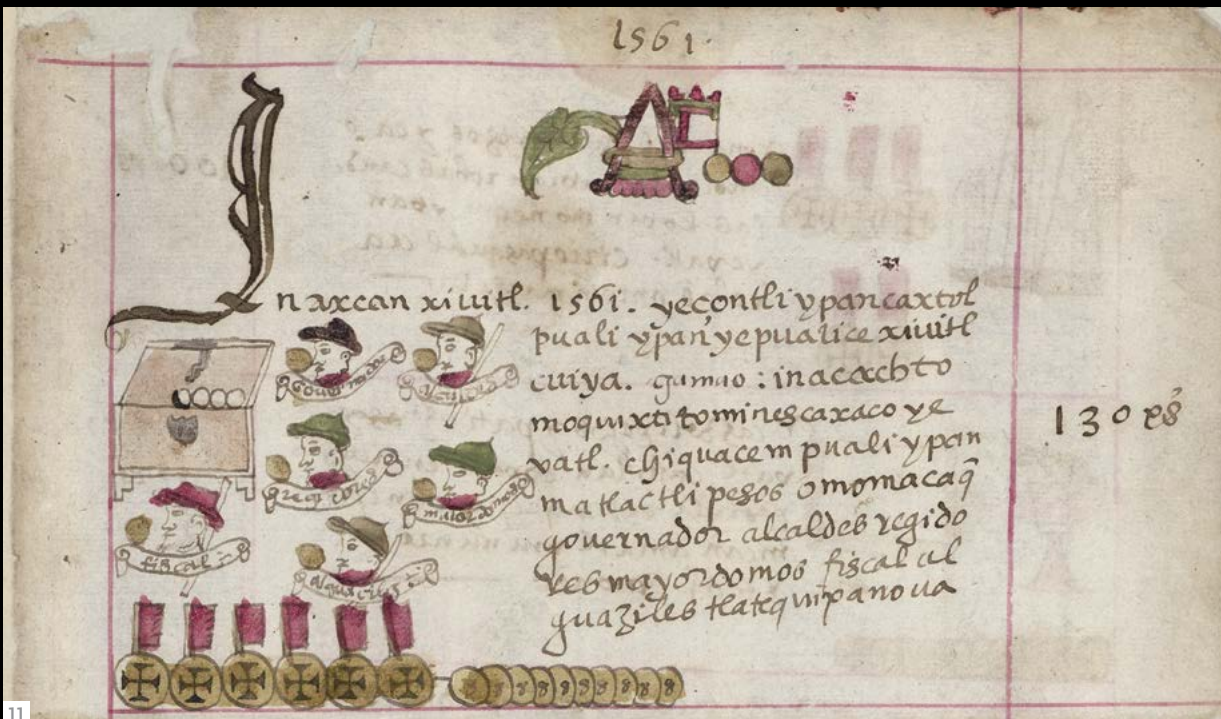 1561.
Inaxcan xiuitl. 1561. yecontli ypan caxtol
puali ypan yepualice xiuitl
cuiya. gumao: inacachto
moquixti tomines caxaco ye
vatl. chiquacempuali ypan
matlactli pesos omomacaq̄
governador alcaldes regido
res mayordomos fiscal al
guaziles tlatequipanoua
130 ps
governador
regidores
maiordomo
fiscal
11